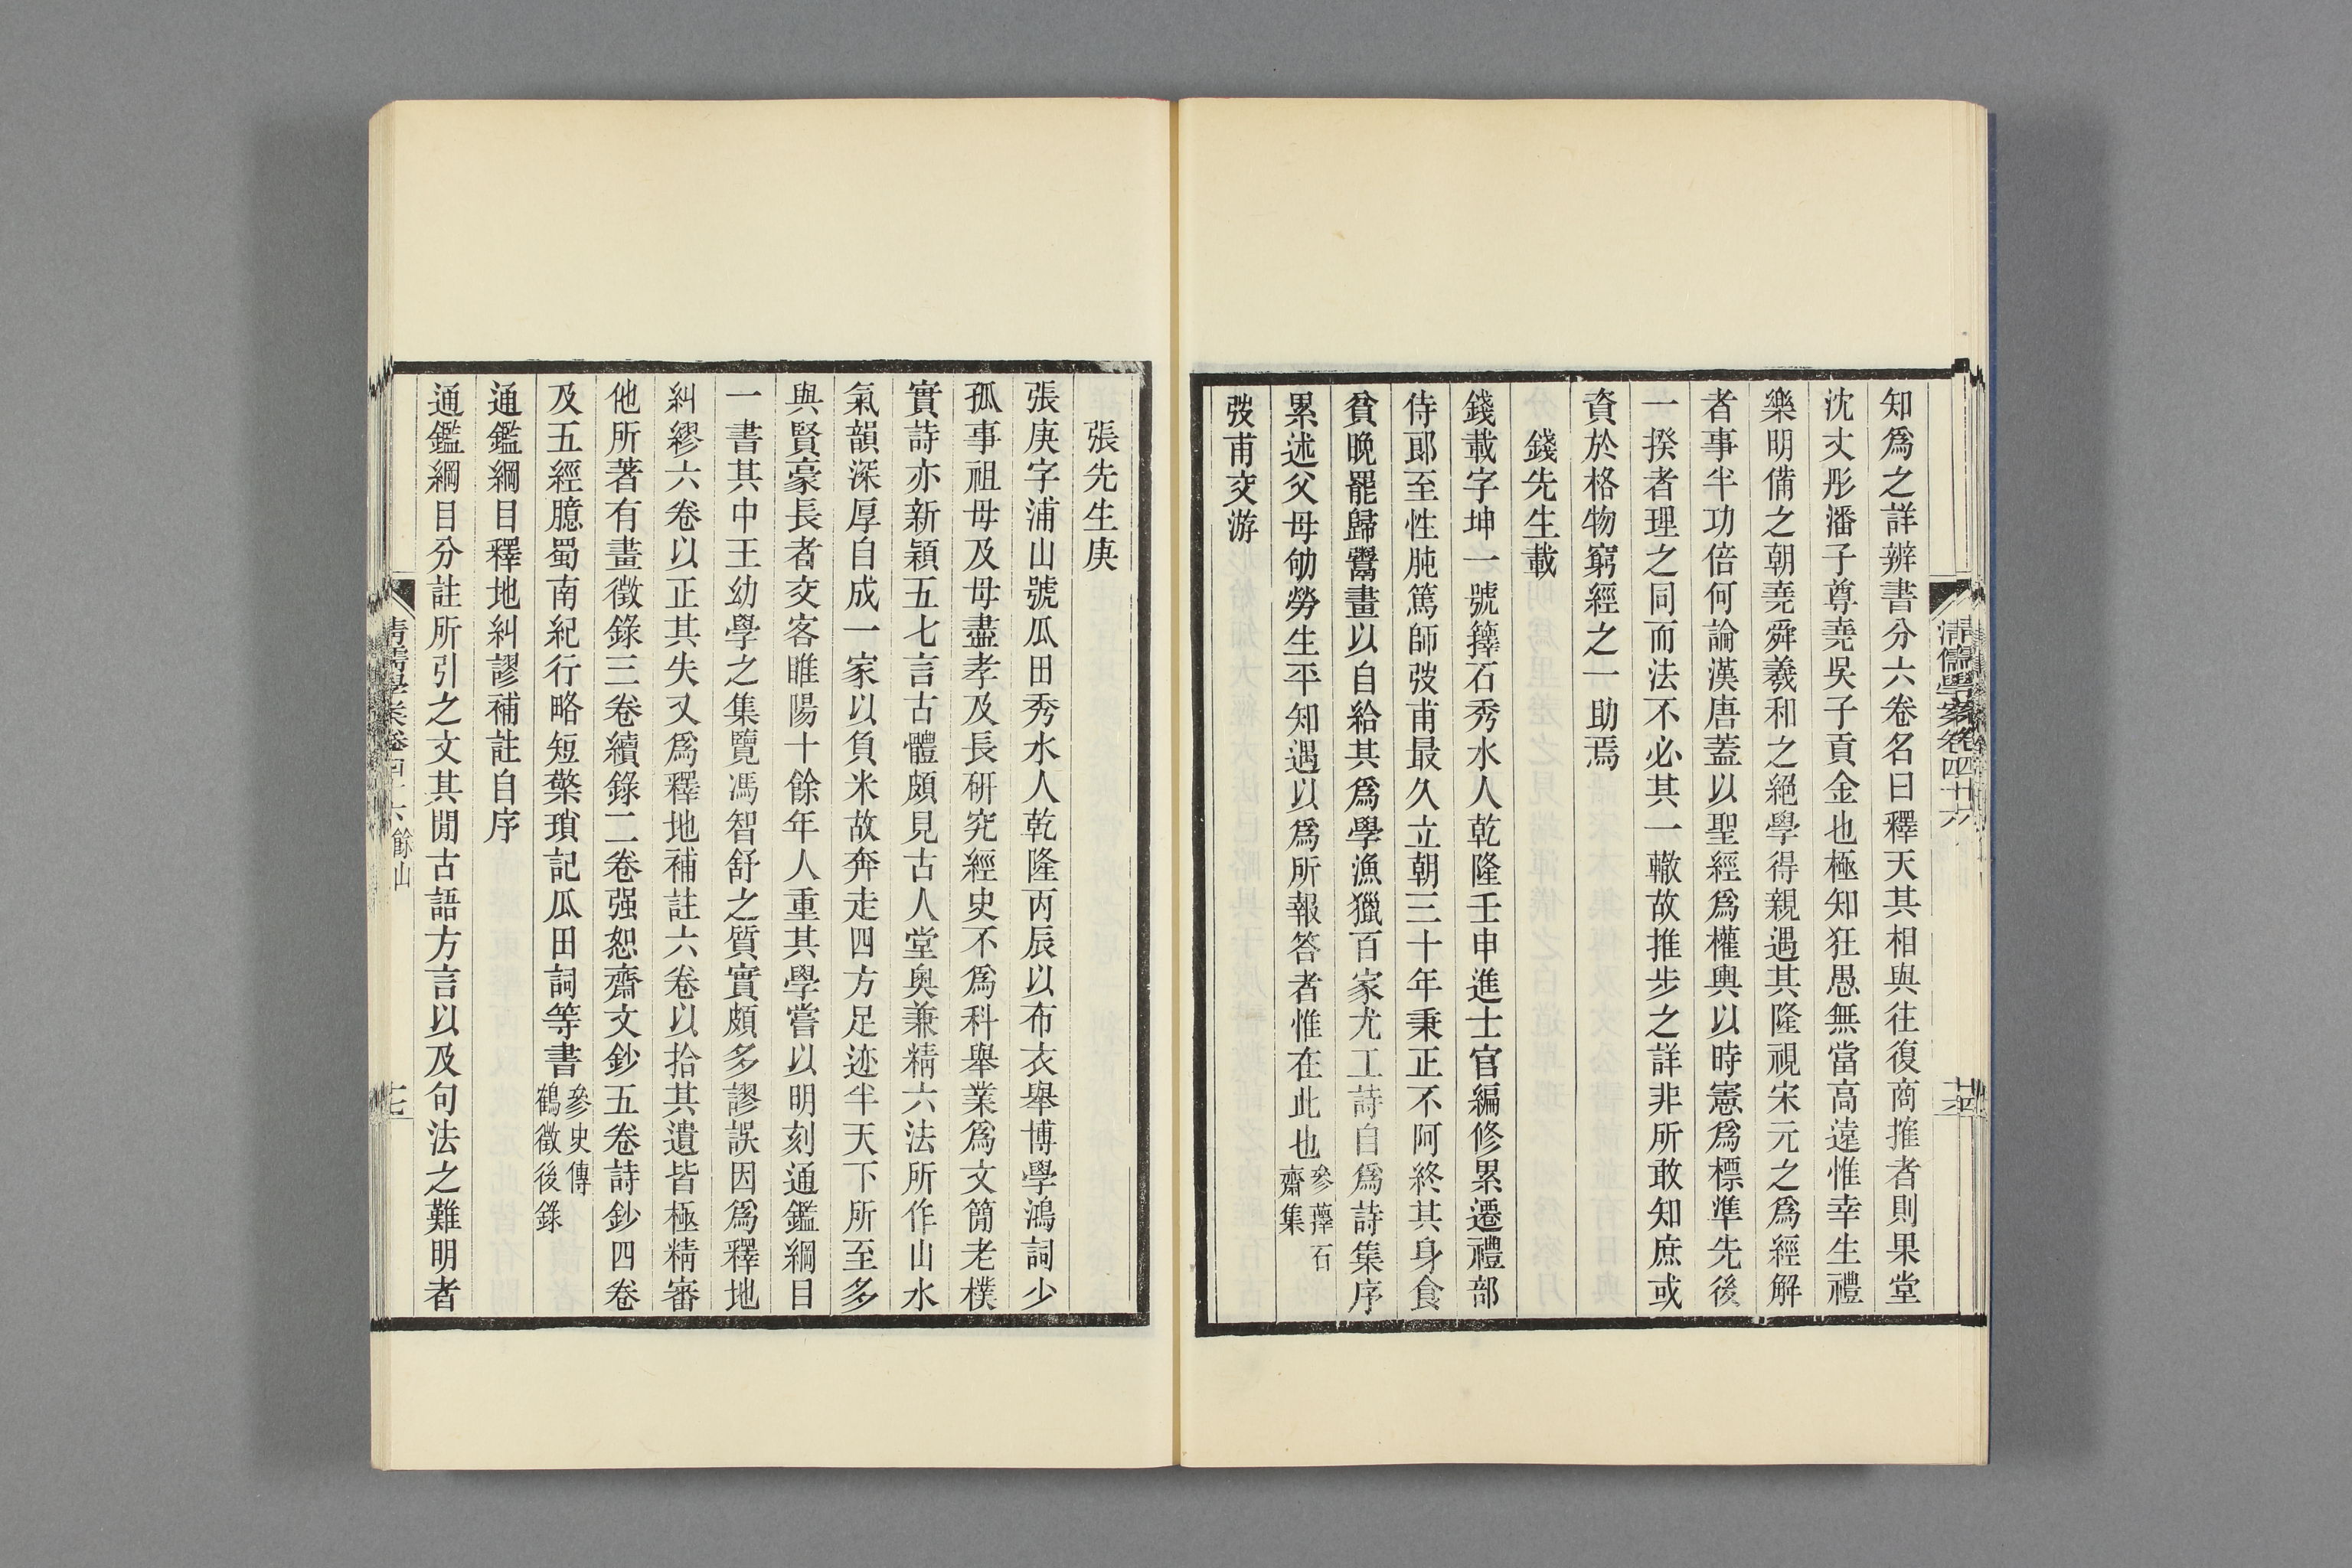 知爲之詳辨書分六卷名曰釋天其相與往復商搉者則果堂
沈丈彤潘子尊堯吳子貢金也極知狂愚無當高遠惟幸生禮
樂明備之朝堯舜羲和之絕學得親遇其隆視宋元之爲經解
者事半功倍何論漢唐蓋以聖經爲權輿以時憲爲標準先後
一揆者理之同而法不必其一轍故推步之詳非所敢知庶或
資於格物窮經之一助焉
錢先生載
錢載字坤一號籜石秀水人乾隆壬申進士官編修累遷禮部
侍郞至性肫篤師弢甫最久立朝三十年秉正不阿終其身食
貧晚罷歸鬻畫以自給其爲學漁獵百家尤工詩自爲詩集序
累述父母劬勞生平知遇以爲所報答者惟在此也參蘀石齋集
弢甫交游
張先生庚
張庚字浦山號瓜田秀水人乾隆丙辰以布衣舉博學鴻詞少
孤事祖母及母盡孝及長研究經史不爲科舉業爲文簡老樸
實詩亦新穎五七言古體頗見古人堂奧兼精六法所作山水
氣韻深厚自成一家以負米故奔走四方足迹半天下所至多
與賢豪長者交客睢陽十餘年人重其學嘗以明刻通鑑綱目
一書其中王幼學之集覽馮智舒之質實頗多謬誤因爲釋地
糾繆六卷以正其失又爲釋地補註六卷以拾其遺皆極精審
他所著有畫徵錄三卷續錄二卷强恕齋文鈔五卷詩鈔四卷
及五經臆蜀南紀行略短檠瑣記瓜田詞等書參史傳鶴徵後錄
通鑑綱目釋地糾謬補註自序
通鑑綱目分註所引之文其閒古語方言以及句法之難明者
清儒學案卷四十六 餘山